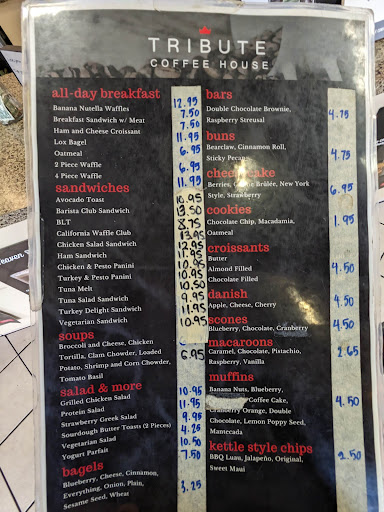 TRIBUTE
COFFEE HOUSE
all-day breakfast
Banana Nutella Waffles 12.95
Breakfast Sandwich w/ Meat 7.50
Ham and Cheese Croissant 7.50
Lox Bagel 11.95
Oatmeal 6.95
2 Piece Waffle 6.95
4 Piece Waffle 11.95
sandwiches
Avocado Toast 10.95
Barista Club Sandwich 13.50
BLT 8.75
California Waffle Club 13.95
Chicken Salad Sandwich 12.95
Ham Sandwich 11.95
Chicken & Pesto Panini 10.95
Turkey & Pesto Panini 10.95
Tuna Melt 10.50
Tuna Salad Sandwich 9.95
Turkey Delight Sandwich 11.95
Vegetarian Sandwich 10.95
soups
Broccoli and Cheese, Chicken
Tortilla, Clam Chowder, Loaded
Potato, Shrimp and Corn Chowder, 6.95
Tomato Basil
salad & more
Grilled Chicken Salad 10.95
Protein Salad 11.95
Strawberry Greek Salad 9.95
Sourdough Butter Toasts (2 Pieces) 4.25
Vegetarian Salad 10.50
Yogurt Parfait 7.50
bagels
Blueberry, Cheese, Cinnamon,
Everything, Onion, Plain, 3.25
Sesame Seed, Wheat
bars
Double Chocolate Brownie,
Raspberry Streusal 4.75
buns
Bearclaw, Cinnamon Roll,
Sticky Pecan 4.75
cheesecake
Berries, Brûlée, New York
Style, Strawberry 6.95
cookies
Chocolate Chip, Macadamia, 1.95
Oatmeal
croissants
Butter
Almond Filled 4.50
Chocolate Filled
danish
Apple, Cheese, Cherry 4.50
scones
Blueberry, Chocolate, Cranberry 4.50
macaroons
Caramel, Chocolate, Pistachio, 2.65
Raspberry, Vanilla
muffins
Banana Nuts, Blueberry,
Coffee Cake, 4.50
Cranberry Orange, Double
Chocolate, Lemon Poppy Seed,
Mantecada
kettle style chips
BBQ Luau, Jalapeño, Original, 2.50
Sweet Maui